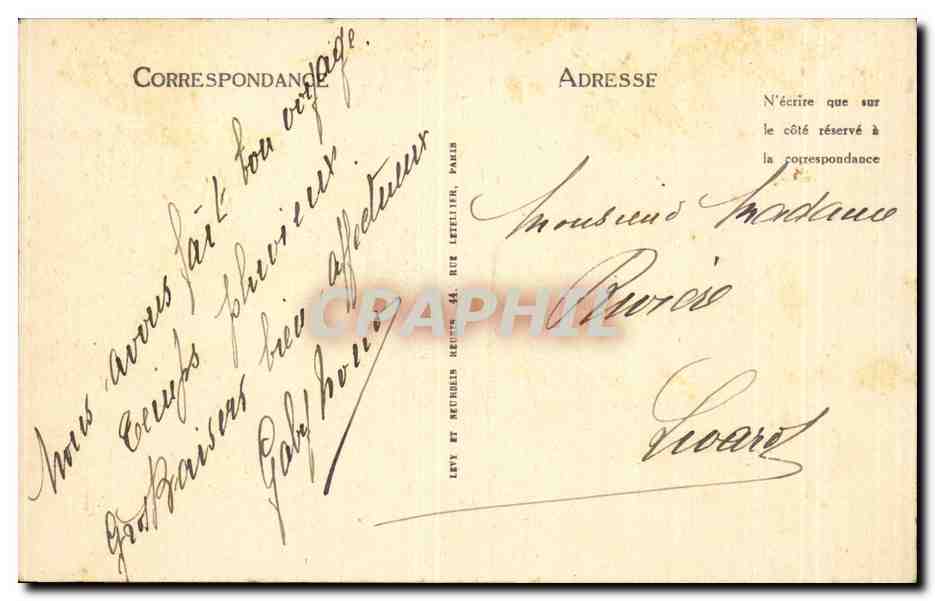 CORRESPONDANCE
Nous avons fait bon voyage.
temps pluvieux
Gros Baisers bien affectueux
Gaby
LEVY ET NEURDEIN REUNIS 44. RUE LETELLIER, PARIS
ADRESSE
N'écrire que sur
le côté réservé à
la correspondance
Monsieur Madame
Rivière
Livarot
CPAPHIL